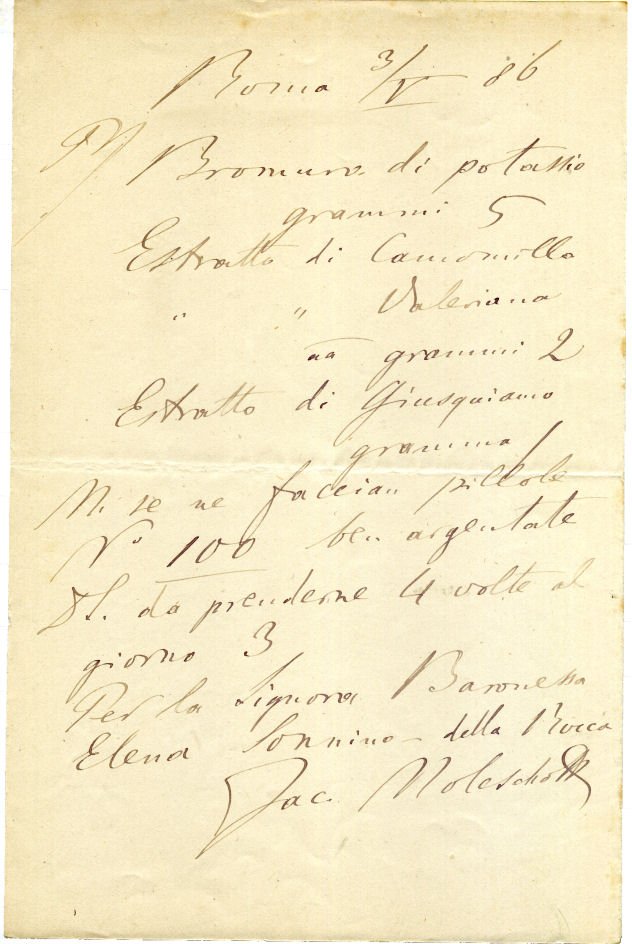 Roma 3/V 86
P/ Bromuro di potassio
grammi 5
Estratto di Camomilla
" " Valeriana
aa grammi 2
Estratto di Giusquiamo
gramma 1
M. se ne faccian pillole
No 100 ben argentate
DS. da prenderne 4 volte al
giorno 3
Per la Signora Baronessa
Elena Sonnino - della Rocca
Jac. Moleschott